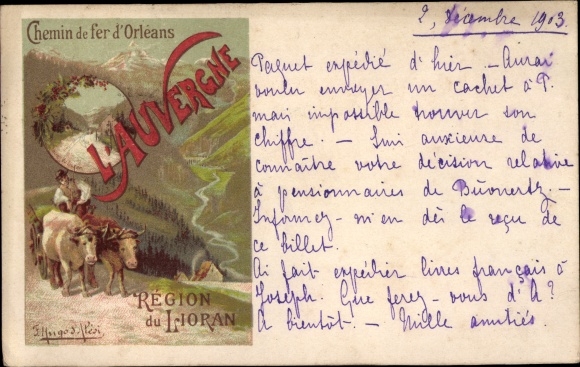 Chemin de fer d'Orléans
L'AUVERGNE
RÉGION
du LIORAN
F. Hugo d'Alési
2, décembre 1903
Paquet expédié d'hier – Aurai
voulu envoyer un cachet à P.
mais impossible trouver son
chiffre. – Suis anxieuse de
connaître votre décision relative
à pensionnaires de
Informez-m'en dès le reçu de
ce billet.
Ai fait expédier livres français à
Joseph. Que ferez-vous d'A?
A bientôt. – Mille amitiés.